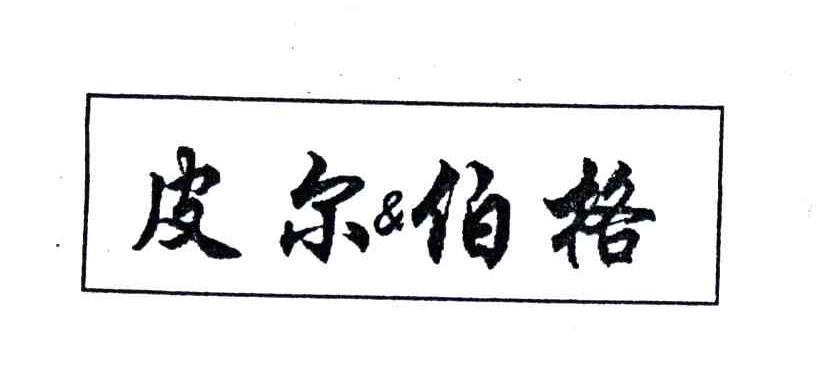 皮尔&伯格